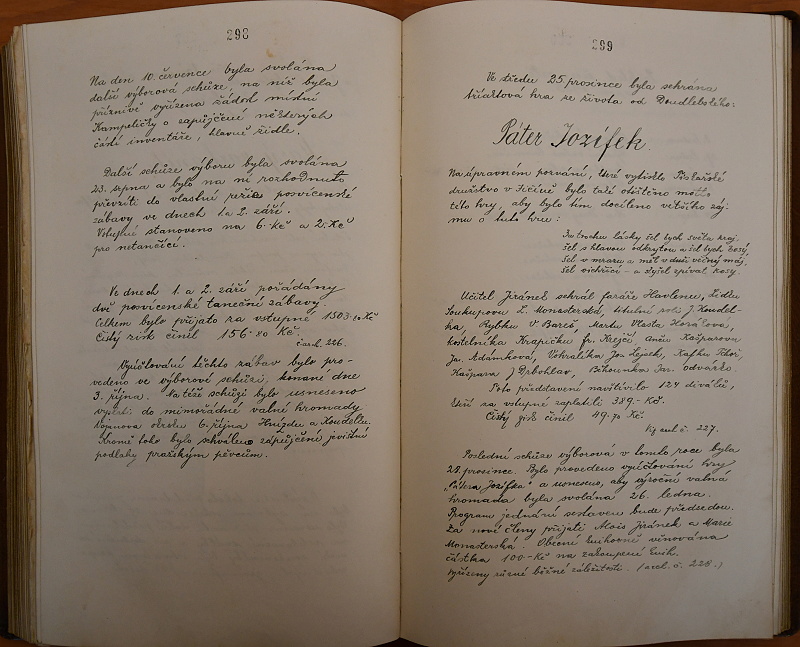 298
Na den 10. července byla svolána
další výborová schůze, na níž byla
příznivě vyřízena žádost místní
Kampeličky o zapůjčení některých
částí inventáře, hlavně židle.
Další schůze výboru byla svolána
23. srpna a bylo na ní rozhodnuto
převzíti do vlastní režie posvícenské
zábavy ve dnech 1. a 2. září.
Vstupné stanoveno na 6.-Kč a 2.-Kč
pro netančící.
Ve dnech 1. a 2. září pořádány
dvě posvícenské taneční zábavy.
Celkem bylo přijato za vstupné 1503·80 Kč
Čistý zisk činil 156·80 Kč.
č. arch. 226.
Vyúčtování těchto zábav bylo pro-
vedeno ve výborové schůzi, konané dne
3. října. Na téže schůzi bylo usneseno
vyslati do mimořádné valné hromady
Vojanova okrsku 6. října Hnízdu a Koudelku.
Kromě toho bylo schváleno zapůjčení jevištní
podlahy pražským pěvcům.
299
Ve středu 25. prosince byla sehrána
tříaktová hra ze života od Doudlebského:
Páter Jozífek.
Na úpravném pozvání, které vytisklo Tiskařské
družstvo v Jičíně bylo také otištěno motto
této hry, aby bylo tím docíleno většího záj-
mu o tuto hru:
Za trochu lásky šel bych světa kraj,
šel s hlavou odkrytou a šel bych bosý,
šel v mrazu a měl v duši věčný máj,
šel vichřicí – a slyšel zpívat kosy.
Učitel Jiránek sehrál faráře Havlenu, Lidku
Soukupovu L. Monasterská, titulní roli J. Koudel-
ka, Rybku V. Bareš, Martu Vlasta Horáčová,
kostelníka Krapičku Fr. Krejčí, Kašparova
Jar. Adámková, Jos. Lejsek, Kafku
Kašpara J. Drbohlav, Běhounka Jar. Odvárko.
Toto představení navštívilo 124 diváků,
kteří za vstupné zaplatili 389.- Kč.
Čistý zisk činil 49·70 Kč.
arch. č. 227.
Poslední schůze výborová v tomto roce byla
28. prosince. Bylo provedeno vyúčtování hry
„Pátera Jozífka" a usneseno, aby výroční valná
hromada byla svolána 26. ledna.
Program jednání sestaven bude předsedou.
Za nové členy přijati Alois Jiránek a Marie
Monasterská. Obecní knihovně věnována
částka 100.-Kč na zakoupení knih.
Vyřízeny různé běžné záležitosti. (arch. č. 228.)